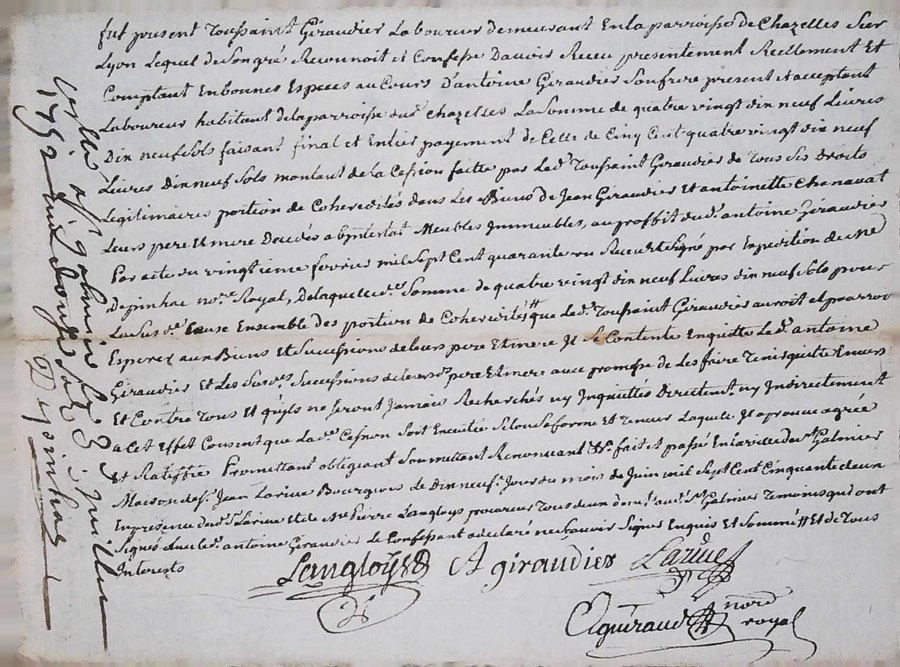 fut present Toussaint Giraudier Laboureur demeurant En la parroisse de Chazelles Sur
Lyon Lequel de Son gré Reconnoit et Confesse D'avoir Reçu presentement Reellement Et
Comptant En bonnes Especes au Cours D'antoine Giraudier Son frere present et acceptant
Laboureur habitant de la parroisse dud. Chazelles La Somme de quatre vingt dix neuf Livres
Dix neuf Sols faisant final et Entier payement de Celle de Cinq Cent quatre vingt dix neuf
Livres Dix neuf Sols montant de la Cession faitte par Led. Toussaint Giraudier de Tous Ses Droits
Legitimaires portion de Coheredités dans Les Biens de Jean Giraudier Et antoinette Chanavat
Leurs pere Et mere Decedés abintestat Meubles Immeubles, au proffit dud. antoine Giraudier
Par acte du vingtieme fevrier mil Sept Cent quarante un Reçu et Signé par Expedition de Me
Depinhac no.re Royal, De laquelle Somme de quatre vingt dix neuf Livres dix neuf Sols pour
La Sus d. Cause Ensemble des portion de Coheredités que Led. Toussaint Giraudier auroit et pourroi
Esperer aux Biens Et Successions de leurs pere Et mere Il Se Contente Enquitte Led. antoine
Giraudier Et Les Successions de leurs pere Et mere avec promesse de Les faire Tenir quitte Envers
Et Contre Tous Et qu'ils ne Seront Jamais Recherchés ny Inquiettés Directem.t ny Indirectement
a Cet Effet Consent que La d. Cession Sort Enextée Selon Sa forme et Teneur Laquelle Il aprouve agrée
et Ratiffie Promettant obligeant Soumettant Renoncant &c fait et passé En la ville de St Galmier
Maison de Sr. Jean Larive Bourgeois Le Dix neuf.e Jour du mois de Juin mil Sept Cent Cinquante deux
En presence dud. Sr. Larive Et de Me Pierre Langloys procureur Tous deux dem.t aud. St Galmier Temoins qui ont
Signés avec led. antoine Giraudier Le Confessant a declaré ne Scavoir Signer Enquis Et Sommé Et de Tous
Interests
Langloys A giraudier Larive
Aguiraud nore
royal
Collé a St galmier le 3 juillet
1752 Reçu douze Sols
Depinhac